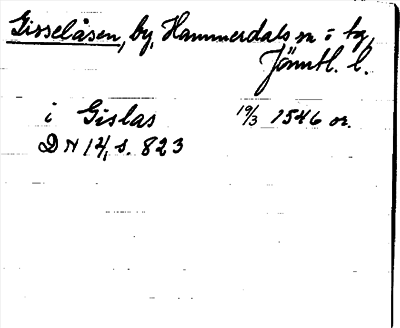 Gisselåsen, by, Hammerdals sn o tg,
Jämtl. l.
i Gislas 19/3 1546 or.
DN 14, s. 823